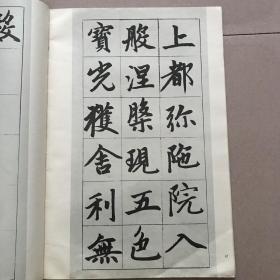 上都弥陁院入
般涅槃現五色
寶光獲舍利無